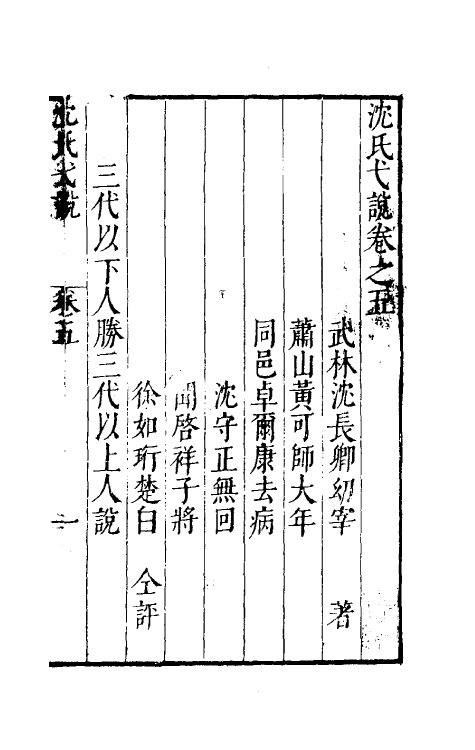 沈氏弋說卷之五
武林沈長卿幼宰 著
蕭山黃可師大年
同邑卓爾康去病
沈守正無回
聞啓祥子將
徐如珩楚白 仝評
三代以下人勝三代以上人說
沈氏弋說 卷五 一